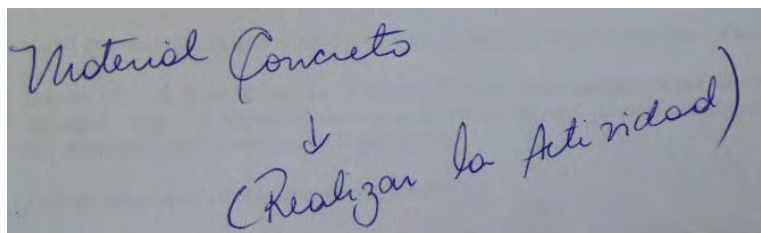 Material Concreto
↓
(Realizar la Actividad)